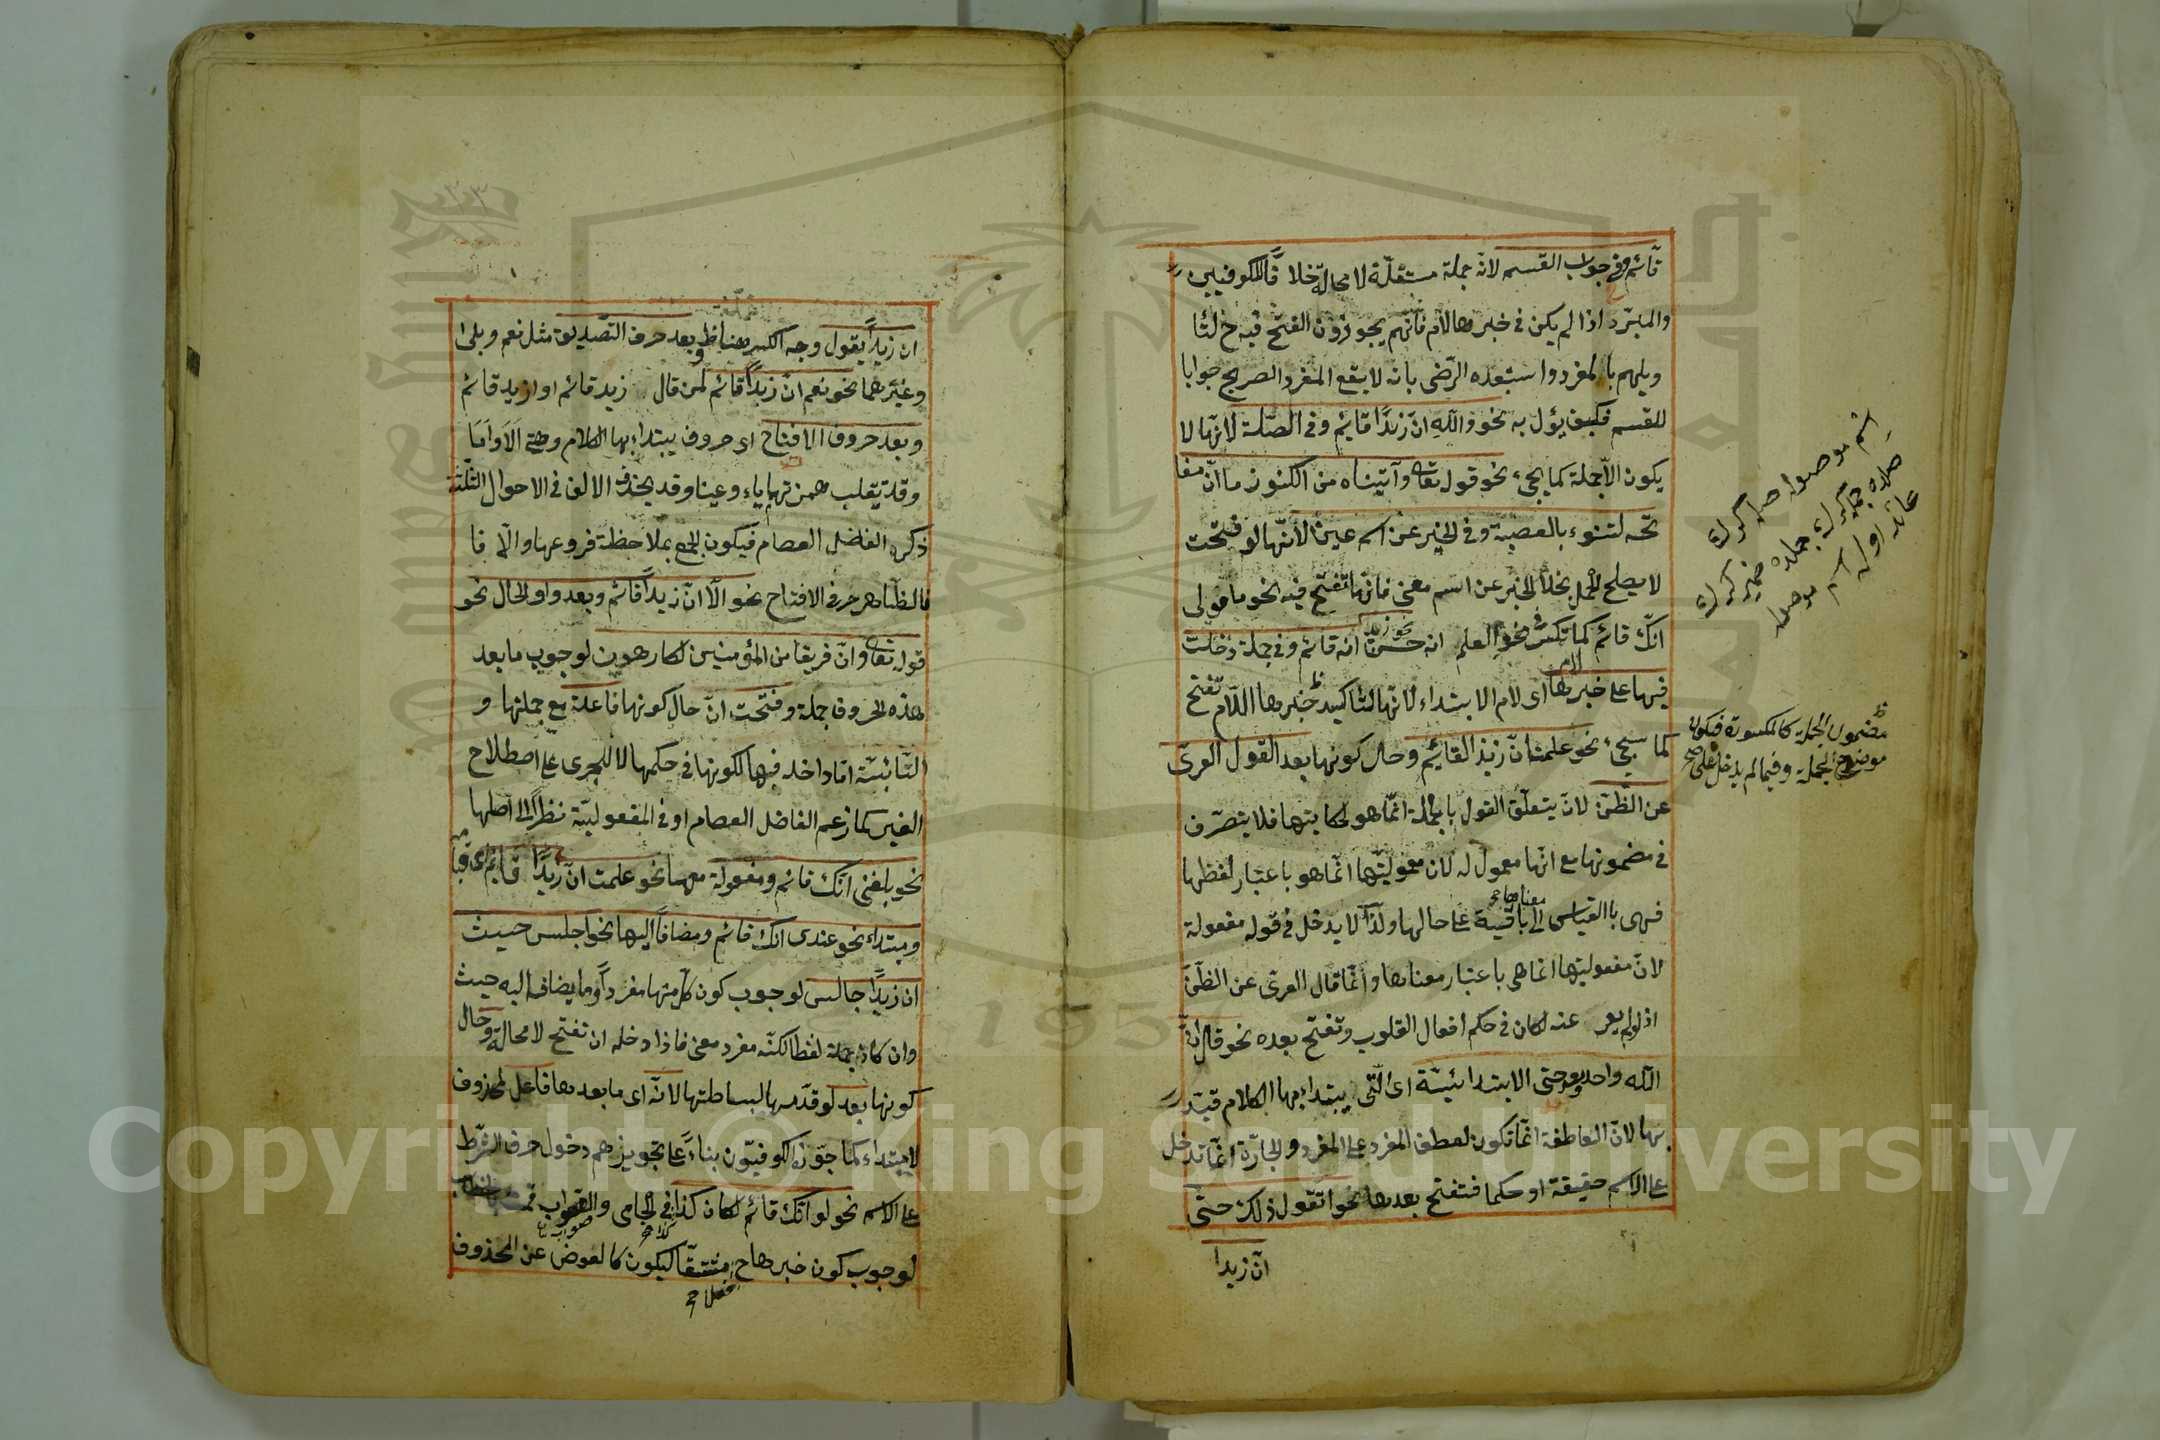 قائم وفي جواب القسم لانه جملة مستقلّة لا محالة خلافًا للكوفيين
والمبرّد اذا لم يكن في خبرها لام فانّهم يجوزون الفتح فيه
بالمفرد واستبعده الرّضى بانه لا يقع المفرد الصريح جوابا
للقسم فكيف يؤل به نحو والله انّ زيدًا قائم وفي الصّلة لانّها لا
يكون الّا جملة كما يجئ نحو قوله تعا وآتيناه من الكنوز ما انّ مفا
تحه لتنوء بالعصبة وفي الخبر عن اسم عين لانّها لو فتحت
لا يصلح للحمل بخلا الخبر عن اسم معنى فانّها تفتح فيه نحو ما قولى
انّك قائم كما تكسر في نحو العلم انه حسن نحو زيد انه قائم وفي جملة دخلت
فيها على خبرها اللام اى لام الابتداء لانّها لتأكيد خبرها اللّام تفتح
كما سيجئ نحو علمت انّ زيد القائم وحال كونها بعد القول العرىّ
عن الظّنّ لانّ يتعلّق القول بالجملة انّما هو لحكايتها فلا يتصرّف
في مضمونها مع انّها معمول له لان معموليّتها انّما هو باعتبار لفظها
فهى بالقياس الى معناها باقية على حالها ولذا لا يدخل في قوله مفعولة
لانّ مفعوليتها انما هى باعتبار معناها وانّما قال العرى عن الظنّ
اذ لو لم يعر عنه لكان في حكم افعال القلوب وتفتح بعده نحو قال انّ
الله واحد وبعد حتى الابتدائيّة اى الّتى يبتداء بها الكلام قيّد
بها لانّ العاطفة انّما تكون لعطف المفرد على المفرد والجارّة انّما تدخل
على الاسم حقيقة او حكما فتفتح بعدها نحو اتقول ذلك حتّى
انّ زيدا
اسم موصوله
مضمون الجملة كالمكسورة فيكون
موضع الجملة وفيما لم يدخل على
ان زيدًا يقول وجه الكسر هنا ظ وبعد حرف التّصديق مثل نعم وبلى
وغيرهما نحو نعم انّ زيدًا قائم لمن قال زيد قائم او ازيد قائم
وبعد حروف الافتاح اى حروف يبتداء بها الكلام وهى الا واما
وقد يقلب همزتهما ياء وعينا وقد يحذف الالف في الاحوال الثّلثة
ذكره الفاضل العصام فيكون الجمع بملاحظة فروعها والّا فا
فالظّاهر حرفى الافتاح نحو الّا انّ زيدًا قائم وبعد واو الحال نحو
قوله تعا وانّ فريقا من المؤمنين لكارهون لوجوب ما بعد
هذه الحروف جملة وفتحت انّ حال كونها فاعلة مع جملتها و
النّائبيّة امّا داخله فيها لكونها في حكمها لا للجرى على اصطلاح
الغير كما زعم الفاضل العصام او في المفعوليّة نظرًا الى اصلها
نحو بلغنى انّك قائم ومفعولة معها نحو علمت انّ زيدًا قائم
ومبتداء نحو عندى انّك قائم ومضافًا اليها نحو اجلس حيث
ان زيدًا جالس لوجوب كون كل منها مفردًا وما يضاف اليه حيث
وان كان جملة لفظا لكنّه مفرد معنى فاذا دخله ان تفتح لا محالة وحال
كونها بعد لو قدّمها لبساطتها لانّه اى ما بعدها فاعل لمحذوف
لا مبتداء كما جوّزه الكوفيّون بناءً على تجويزهم دخول حرف الشّرط
على الاسم نحو لو انّك قائم لكان كذا في الجامى والصّواب
لوجوب كون خبرها ح مشتقّا ليكون كالعوض عن المحذوف